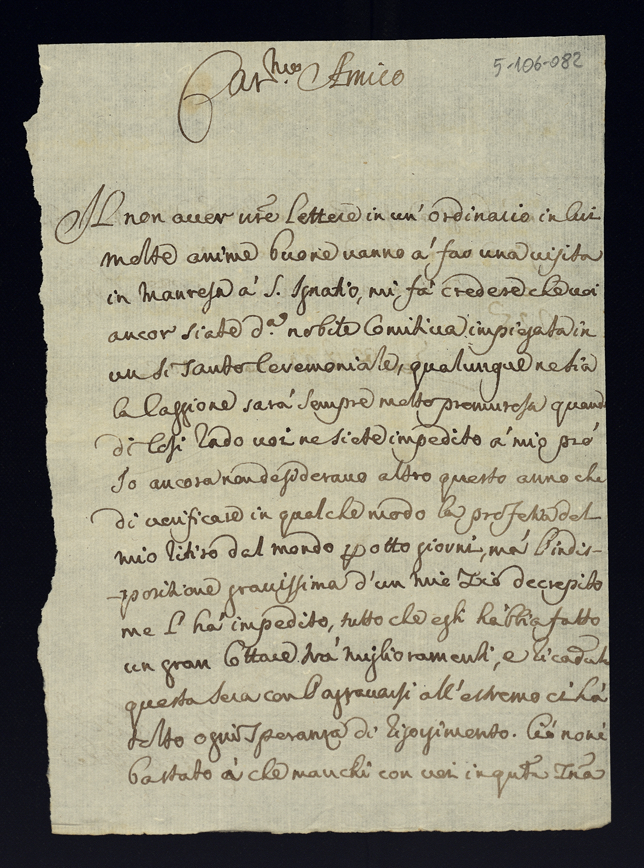 5-106-082
Car.mo Amico
Il non aver vre lettere in un' ordinario in cui
molte anime buone vanno á far una visita
in Manresa á S. Ignatio, mi fá credere che voi
ancor siate d.a nobile Comitiva impiegata in
un si santo Ceremoniale, qualunque ne sia
la Caggione sará sempre molto premurosa quando
di Cosi Rado voi ne siete impedito á mio pró
Io ancora non desideravo altro questo anno che
di verificare in qualche modo la profetia del
mio ritiro dal mondo p otto giorni, má l'indis-
-positione gravissima d'un mio Zio decrepito
me l' há impedito, tutto che egli habbia fatto
un gran Cottare trá miglioramenti, e ricadute
questa sera con l'agravarsi all' estremo ci há
tolto ogni speranza di risorgimento. Ció non é
bastato á che manchi con voi in qta